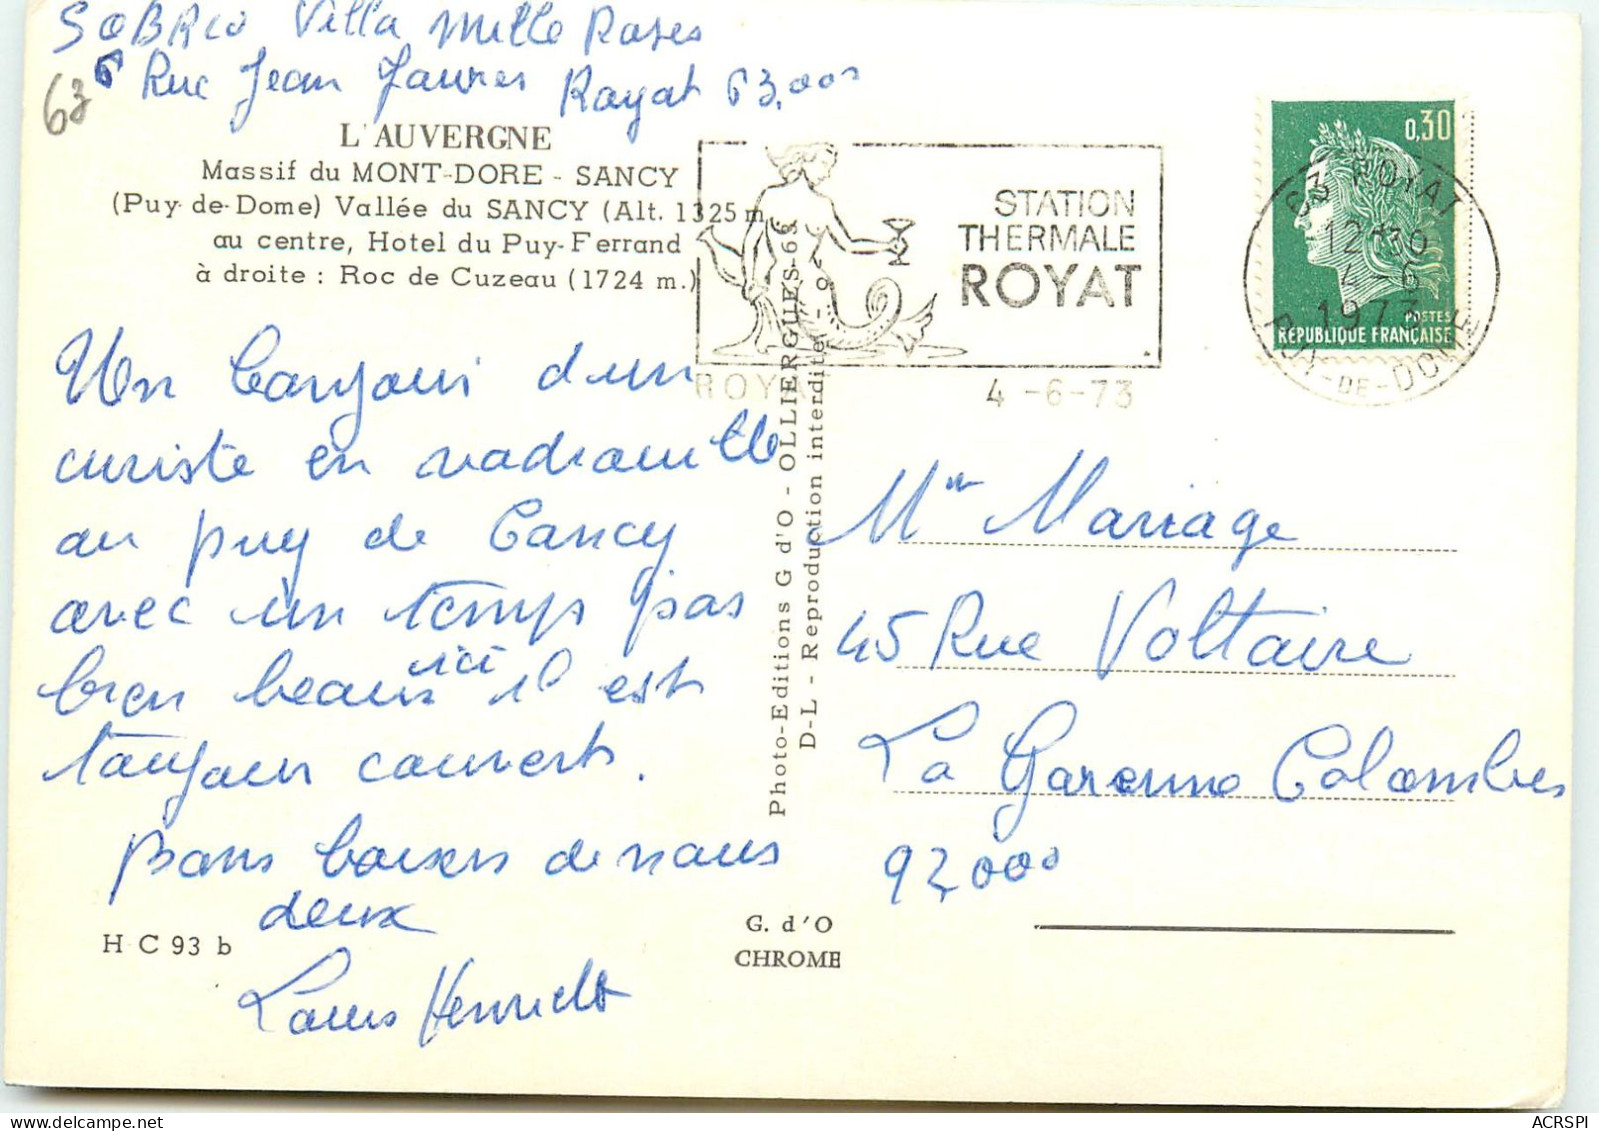 SOBRIO Villa Mille Roses
6 Rue Jean Jaures Royat 63.000
63
L'AUVERGNE
Massif du MONT-DORE - SANCY
(Puy-de-Dome) Vallée du SANCY (Alt. 1325 m
au centre, Hotel du Puy-Ferrand
à droite : Roc de Cuzeau (1724 m.)
Un bonjour d'un
curiste en vadrouille
au puy de Sancy
avec un temps pas
bien beau ici il est
toujours couvert.
Bons baisers de nous
deux
Louis Henriette
H C 93 b
G. d'O
CHROME
Photo-Editions G d'O - OLLIERGUES-63
D-L - Reproduction interdite -
STATION
THERMALE
ROYAT
ROYAT
4-6-73
63 ROYAT
12H30
4-6
1973
PUY-DE-DOME
0,30
POSTES
REPUBLIQUE FRANÇAISE
Mme Mariage
45 Rue Voltaire
La Garenne Colombes
92,000
ACRSPI
delcampe.net